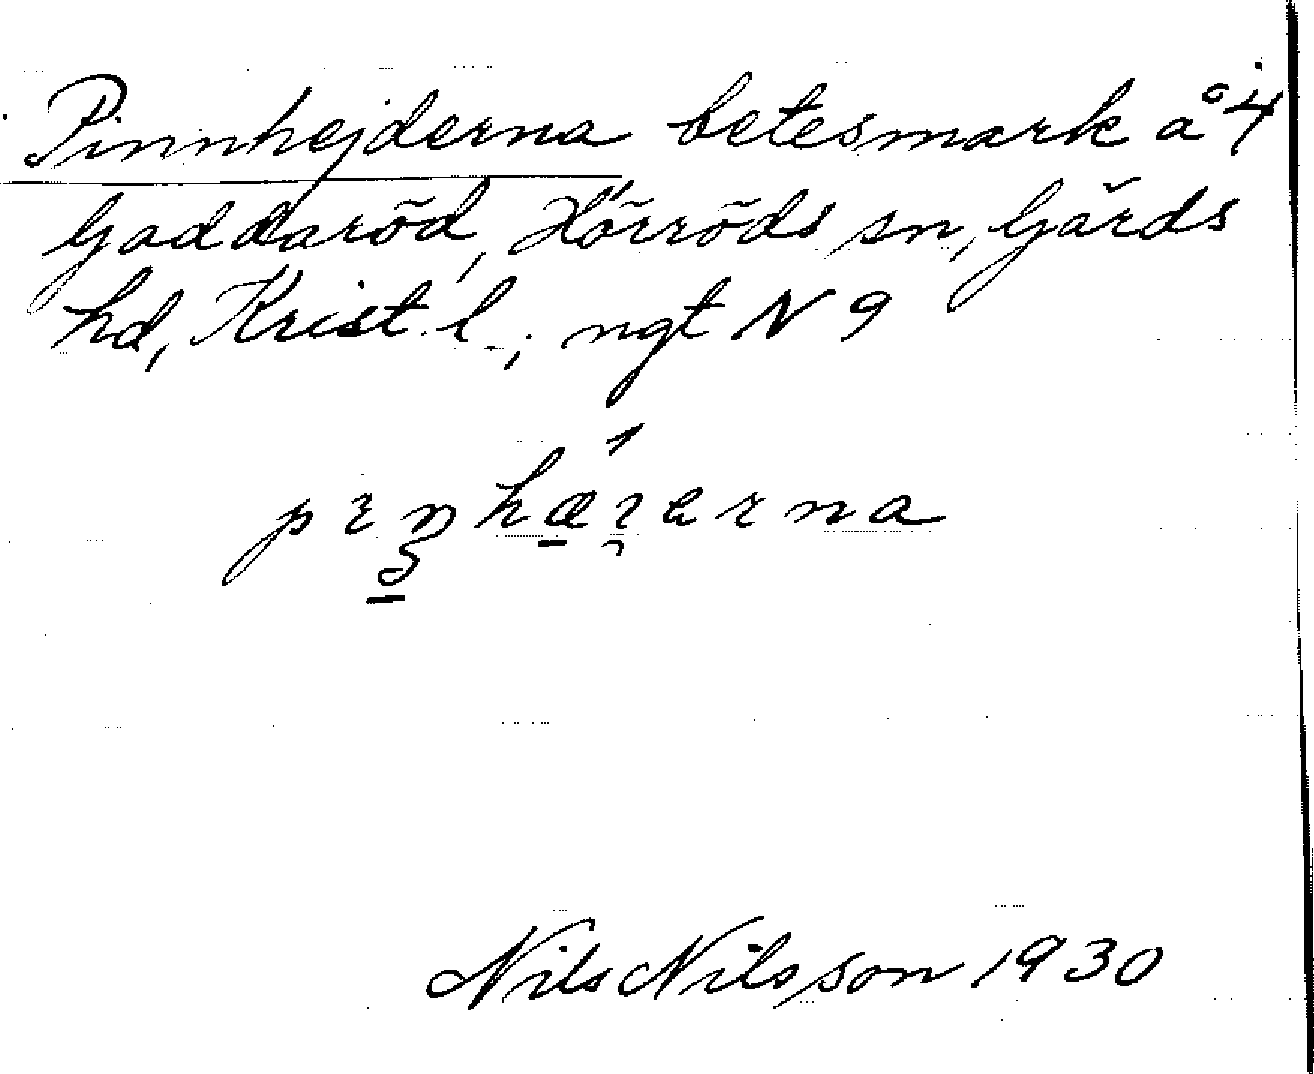 Pinnhejderna betesmark å 4
Gaddaröd, Hörröds sn, Gärds
hd, Krist. l., ngt N 9
Nils Nilsson 1930